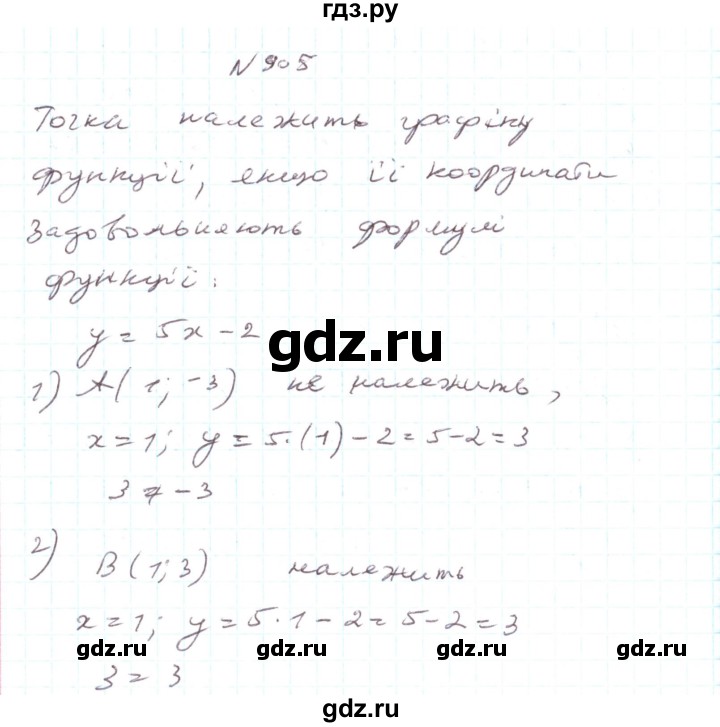 гдз.ру
N 905
Точка належить графіку
функції, якщо її координати
Задовольняють формулі
функції:
y = 5x - 2
gdz.ru
1) A(1; -3) не належить,
x = 1; y = 5·(1) - 2 = 5 - 2 = 3
3 ≠ -3
2) B(1; 3) належить
x = 1; y = 5·1 - 2 = 5 - 2 = 3
gdz.ru gdz.ru gdz.ru
3 = 3